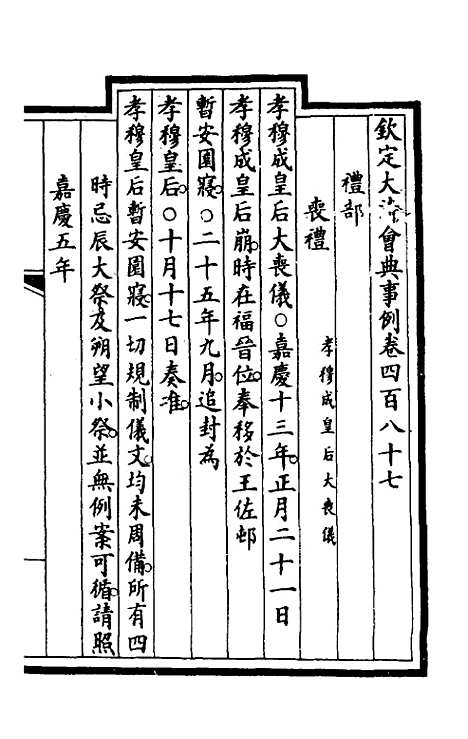 欽定大清會典事例卷四百八十七
禮部
喪禮
孝穆成皇后大喪儀
孝穆成皇后大喪儀○嘉慶十三年。正月二十一日
孝穆成皇后崩。時在福晉位。奉移於王佐邨
暫安園寢。○二十五年九月。追封為
孝穆皇后。○十月十七日奏准。
孝穆皇后暫安園寢。一切規制儀文。均未周備。所有四
時忌辰大祭。及朔望小祭。並無例案可循。請照
嘉慶五年